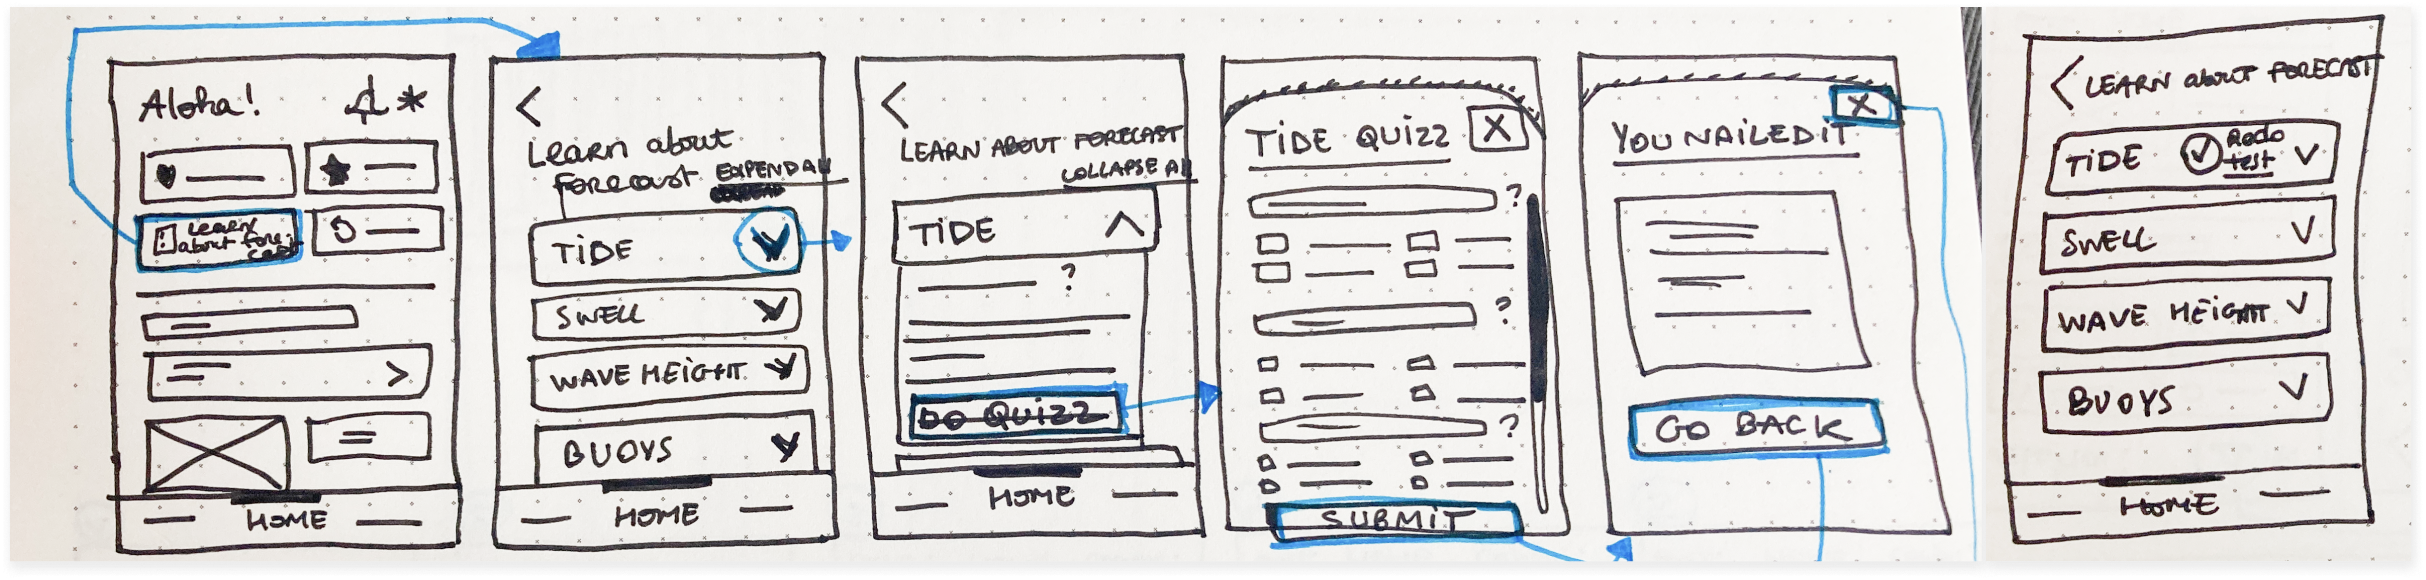 Aloha!
Learn
about fore-
cast
HOME
<
Learn about
forecast
EXPEND All
TIDE
SWELL
WAVE HEIGHT
BUOYS
HOME
<
LEARN ABOUT FORECAST
COLLAPSE All
TIDE
?
DO QUIZZ
HOME
TIDE QUIZZ
X
?
?
?
SUBMIT
X
YOU NAILED IT
GO BACK
< LEARN about FORECAST
TIDE
Redo
test
SWELL
WAVE HEIGHT
BUOYS
HOME